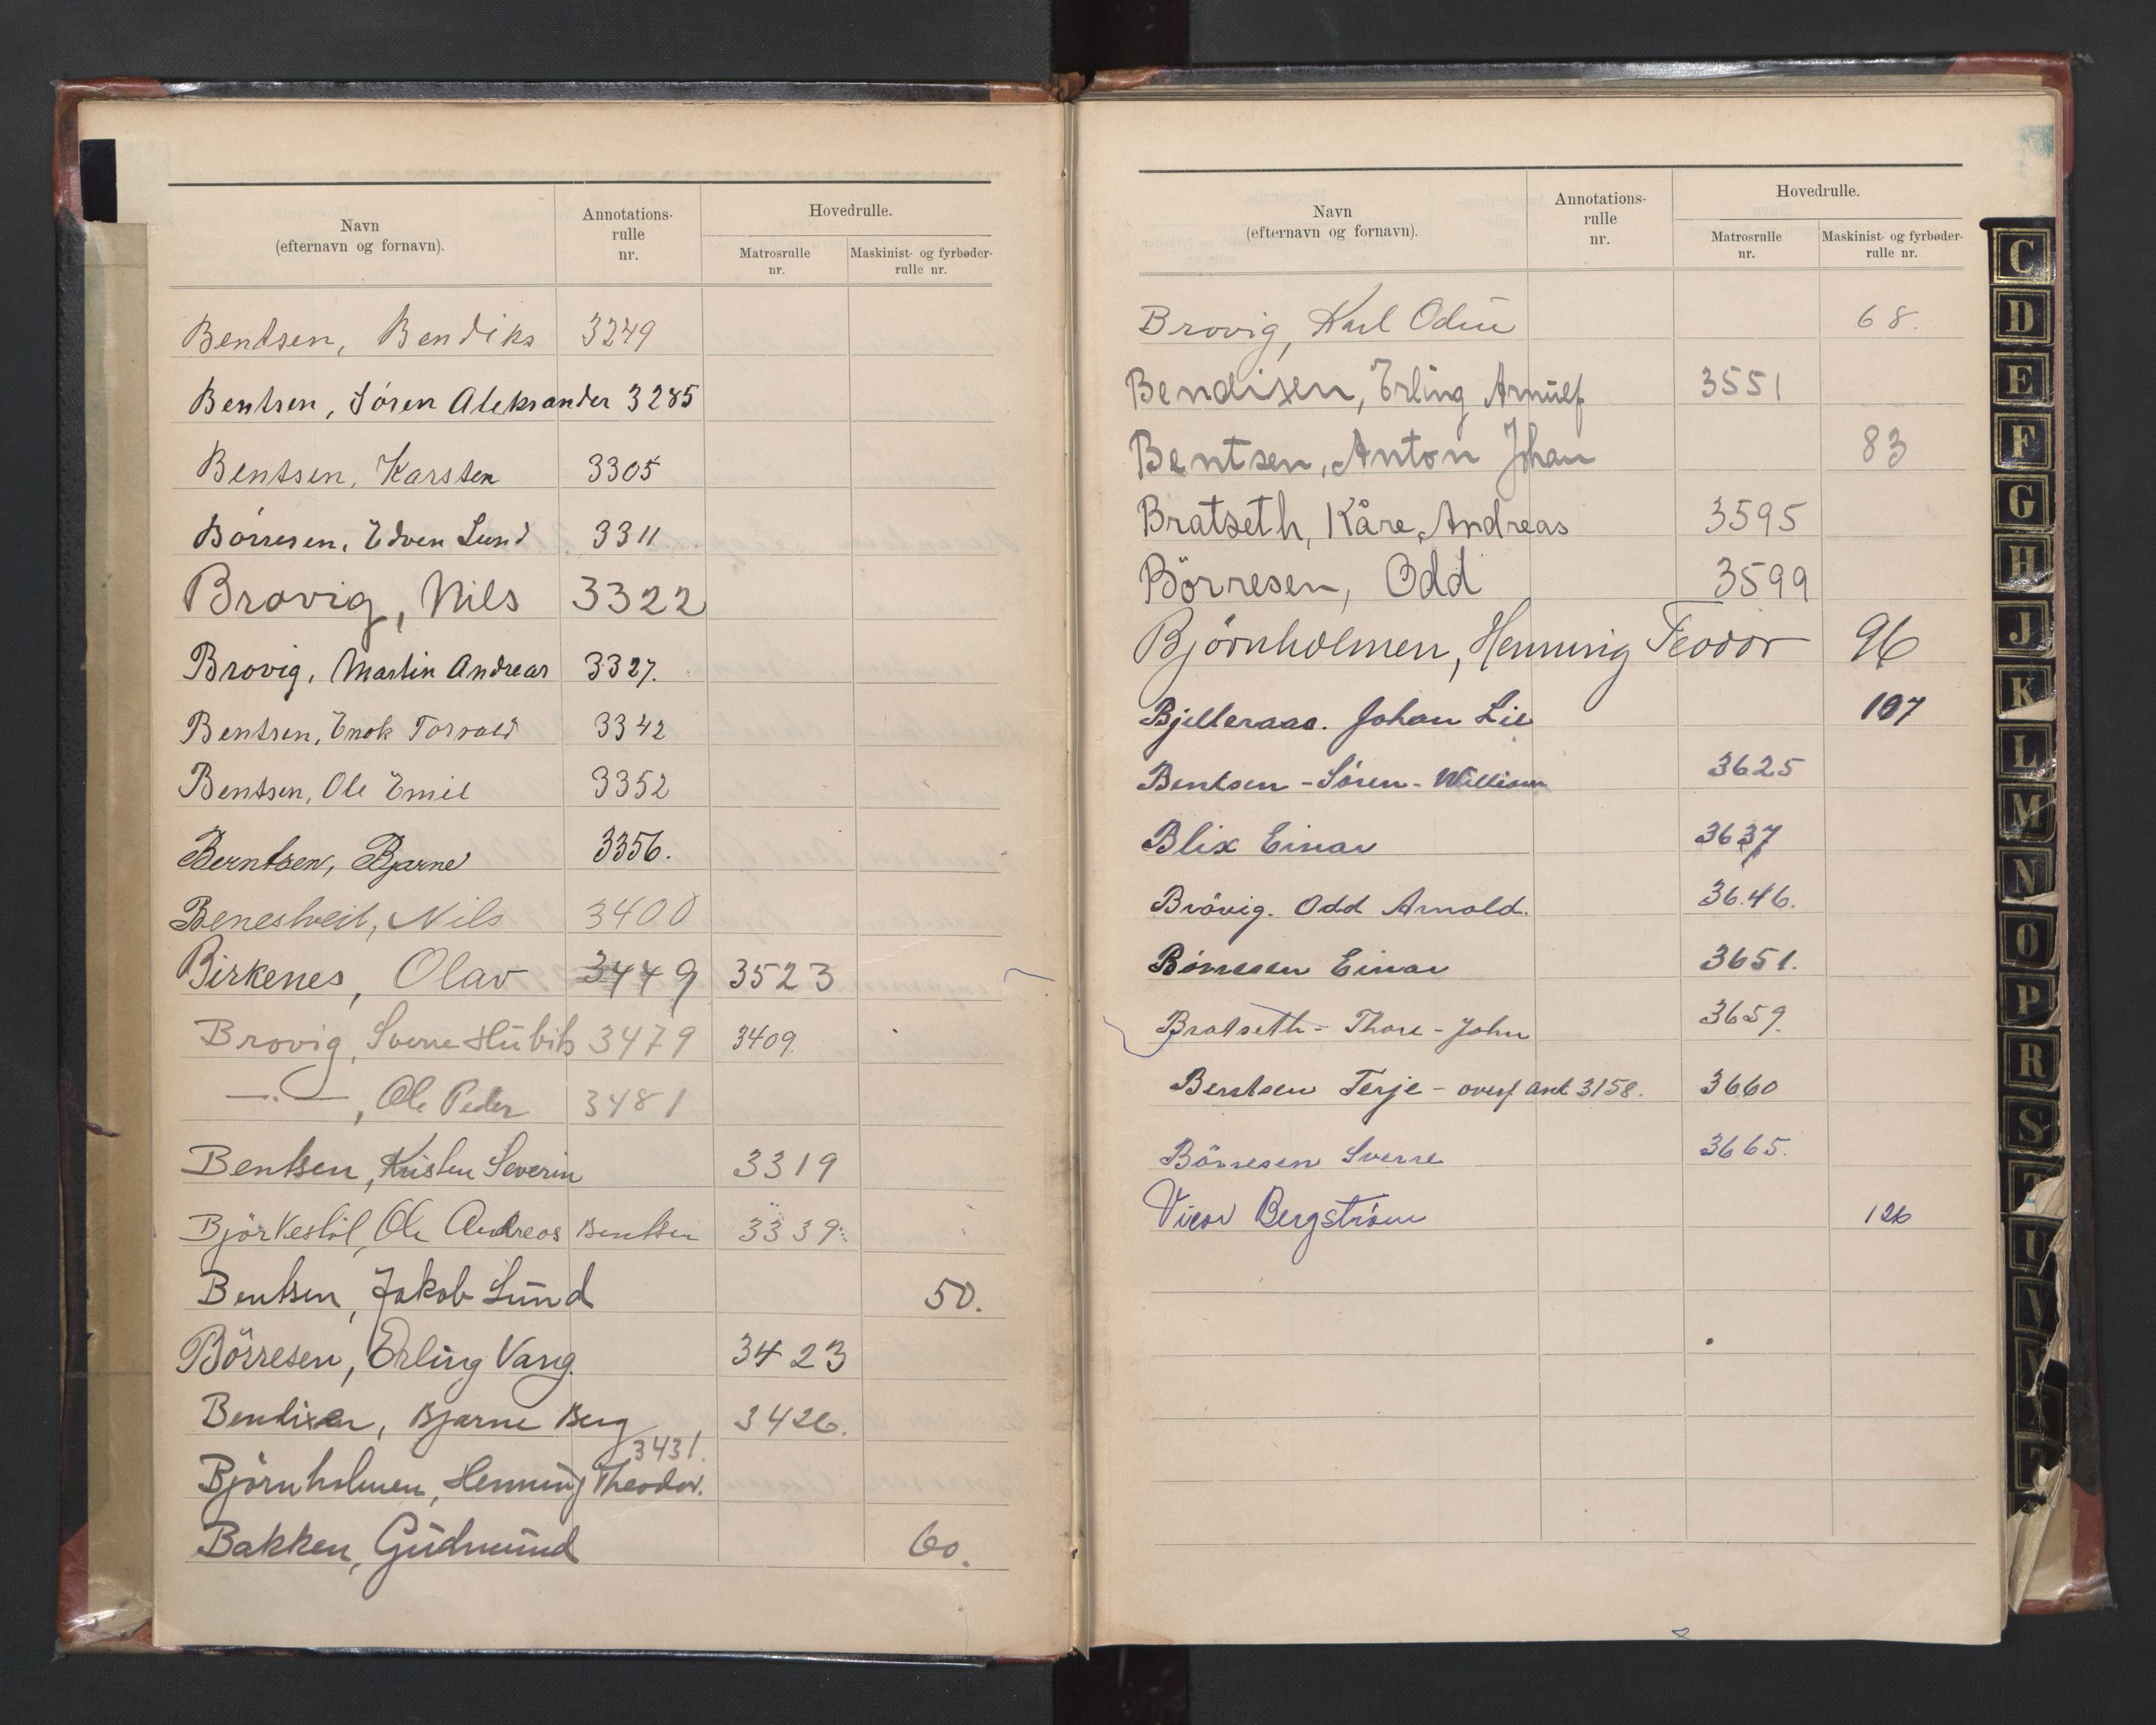 Navn
(efternavn og fornavn).
Annotations-
rulle
nr.
Hovedrulle.
Matrosrulle
nr.
Maskinist- og fyrbøder-
rulle nr.
Bentsen, Bendiks 3249
Bentsen, Søren Aleksander 3285
Bentsen, Karsten 3305
Børresen, Edven Lund 3311
Brovig, Nils 3322
Brovig, Martin Andreas 3327.
Bentsen, Enok Torvald 3342
Bentsen, Ole Emil 3352
Berntsen, Bjarne 3356.
Benestveit, Nils 3400
Birkenes, Olav 3449 3523
Brovig, Sverre 3479 3409.
—"—, Ole Peder 3481
Bentsen, Kristen Severin 3319
Björkestöl, Ole Andreas Bentsen 3339
Bentsen, Jakob Lund 50.
Börresen, Erling Vang. 3423
Bendixen, Bjarne Berg 3426.
3431.
Björnholmen, Henning Theodor.
Bakken, Gudmund 60.
Navn
(efternavn og fornavn).
Annotations-
rulle
nr.
Hovedrulle.
Matrosrulle
nr.
Maskinist- og fyrbøder-
rulle nr.
Brovig, Karl Odin 68.
Bendixen, Erling Arnulf 3551
Bentsen, Anton Johan 83
Bratseth, Kåre, Andreas 3595
Börresen, Odd 3599
Björnholmen, Henning Teodor 96
Bjelleraas. Johan Lie 107
Bentsen - Sören - William 3625
Blix Einar 3637
Brövig. Odd Arnold. 3646.
Börresen Einar 3651.
Bratseth - Thore - John 3659.
Bentsen Terje - overf ant 3158. 3660
Börresen Sverre 3665.
Vicor Bergström 126
C
D
E
F
G
H
J
K
L
M
N
O
P
R
S
T
U
V